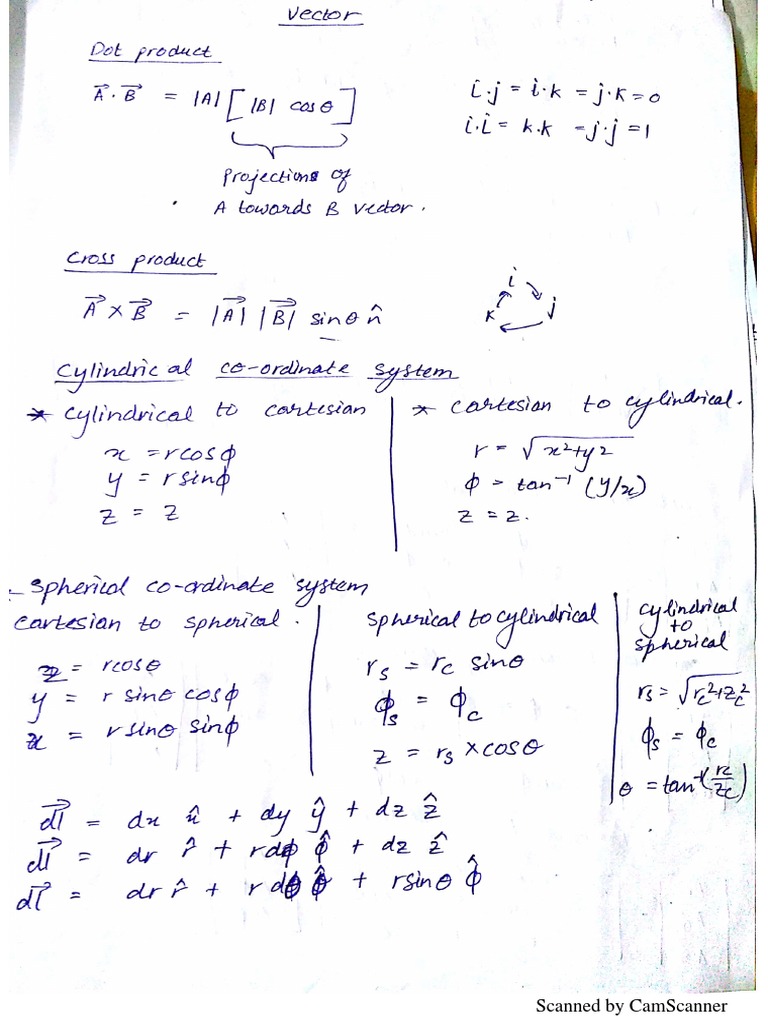 Vector
Dot product
A⃗ · B⃗ = |A| [ |B| cosθ ]
Projections of
A towards B vector.
i·j = i·k = j·k = 0
i·i = k·k = j·j = 1
Cross product
A⃗ × B⃗ = |A⃗| |B⃗| sinθ n̂
i
k j
Cylindrical co-ordinate system
* Cylindrical to cartesian
x = rcosϕ
y = rsinϕ
z = z
* cartesian to cylindrical.
r = √x²+y²
ϕ = tan⁻¹ (y/x)
z = z.
- Spherical co-ordinate system
Cartesian to spherical.
z = rcosθ
y = r sinθ cosϕ
x = rsinθ sinϕ
Spherical to cylindrical
rs = rc sinθ
ϕs = ϕc
z = rs × cosθ
cylindrical
to
spherical
rs = √rc²+zc²
ϕs = ϕc
θ = tan⁻¹(rc/zc)
dl⃗ = dx x̂ + dy ŷ + dz ẑ
dl⃗ = dr r̂ + rdϕ ϕ̂ + dz ẑ
dl⃗ = dr r̂ + r dθ θ̂ + rsinθ ϕ̂
Scanned by CamScanner